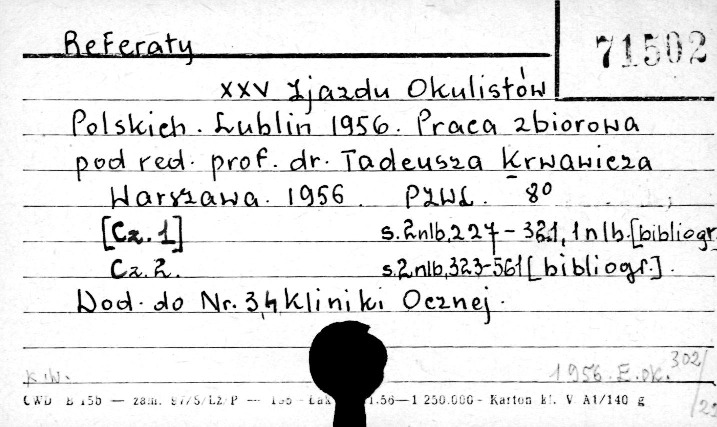 Referaty
71502
XXV Zjazdu Okulistów
Polskich. Lublin 1956. Praca zbiorowa
pod red. prof. dr. Tadeusza Krwawicza
Warszawa. 1956 PZWL. 8º
[Cz. 1] s.2nlb,227-321,1nlb.[bibliogr.
Cz. 2. s.2nlb,323-561[bibliogr.].
Dod. do Nr. 3,4 Kliniki Ocznej.
K.W. 1956.E.ok. 302/
CWD B 15b — zam. 97/S/LZ/P — .56—1 250.000 - Karton kl. V A1/140 g